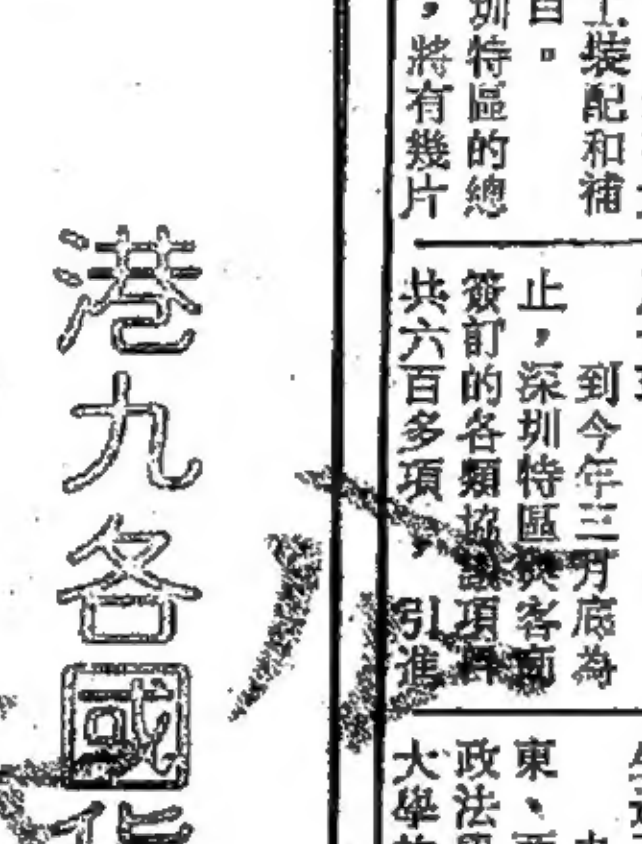 裝配和補
圳特區的總
，將有幾片
到今年三月底為
止，深圳特區與客商
簽訂的各類協議項目
共六百多項，引進
東、
政法
大學
港九各國